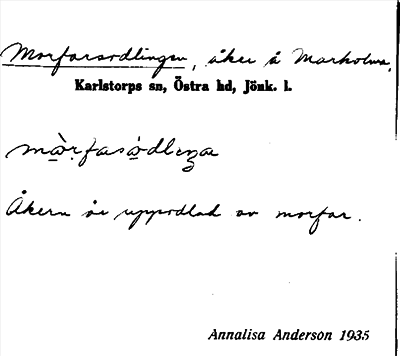 Morfarsodlingen, åker å Marholma,
Karlstorps sn, Östra hd, Jönk. l.
mòrfasódlenɡa
Åkern är uppodlad av morfar.
Annalisa Anderson 1935